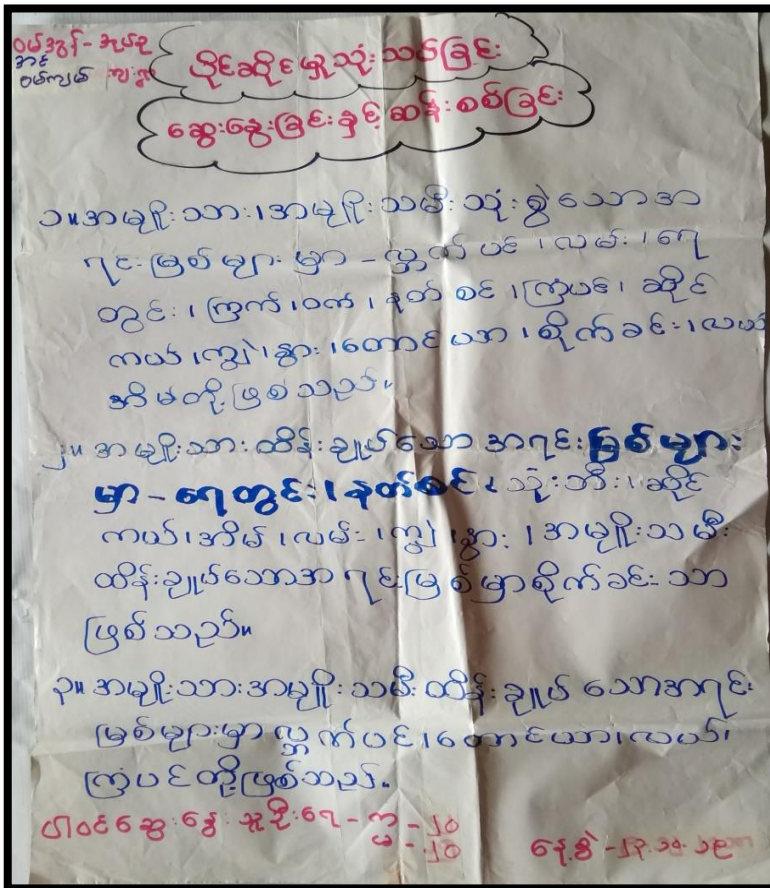 ဝမ်အွန် - အုပ်စု
အင်
ဝမ်ကျမ် ကျးရွာ
ပိုင်ဆိုင်မှုသုံးသပ်ခြင်း
ဆွေးနွေးခြင်းနှင့်ဆန်းစစ်ခြင်း
၁။အမျိုးသား၊အမျိုးသမီးသုံးစွဲသောအ
ရင်းမြစ်များမှာ - လ္ဘက်ပင်၊လမ်း၊ရေ
တွင်း၊ကြက်၊ဝက်၊နတ်စင်၊ကြံပင်၊ဆိုင်
ကယ်၊ကျွဲ၊နွား၊တောင်ယာ၊စိုက်ခင်း၊လယ်
အိမ်တို့ဖြစ်သည်။
၂။အမျိုးသားထိန်းချုပ်သောအရင်းမြစ်များ
မှာ - ရေတွင်း၊နတ်စင်၊သုံးဘီး၊ဆိုင်
ကယ်၊အိမ်၊လမ်း၊ကျွဲ၊နွား၊အမျိုးသမီး
ထိန်းချုပ်သောအရင်းမြစ်မှာစိုက်ခင်းသာ
ဖြစ်သည်။
၃။အမျိုးသားအမျိုးသမီးထိန်းချုပ်သောအရင်း
မြစ်များမှာလ္ဘက်ပင်၊တောင်ယာ၊လယ်၊
ကြံပင်တို့ဖြစ်သည်။
ပါဝင်ဆွေးနွေးသူဦးရေ - ကျ - ၂၀
မ - ၂၀
နေ့စွဲ -